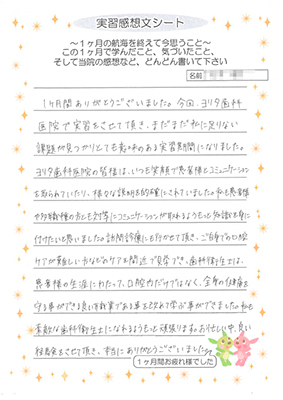 実習感想文シート
〜1ヶ月の航海を終えて今思うこと〜
この1ヶ月で学んだこと、気づいたこと、
そして当院の感想など、どんどん書いて下さい
名前
1ヶ月間ありがとうございました。今回、ヨリタ歯科
医院で実習をさせて頂き、まだまだ私に足りない
課題が見つかりとても意味のある実習期間になりました。
ヨリタ歯科医院の皆様は、いつも笑顔で患者様とコミュニケーション
を取られていたり、様々な説明を的確にされていました。私も患者様
や多職種の方とも対等にコミュニケーションが取れるようもっと知識を身に
付けたいと思いました。訪問診療にも行かせて頂き、ご自身での口腔
ケアが難しい方などのケアを間近で見学でき、歯科衛生士は、
患者様の生涯にわたって、口腔内だけでなく、全身の健康を
守る事ができる良い職業である事を改めて学ぶ事ができました。私も
素敵な歯科衛生士になれるようもっと頑張ります。お忙しい中、良い
経験をさせて頂き、本当にありがとうございました。
1ヶ月間お疲れ様でした